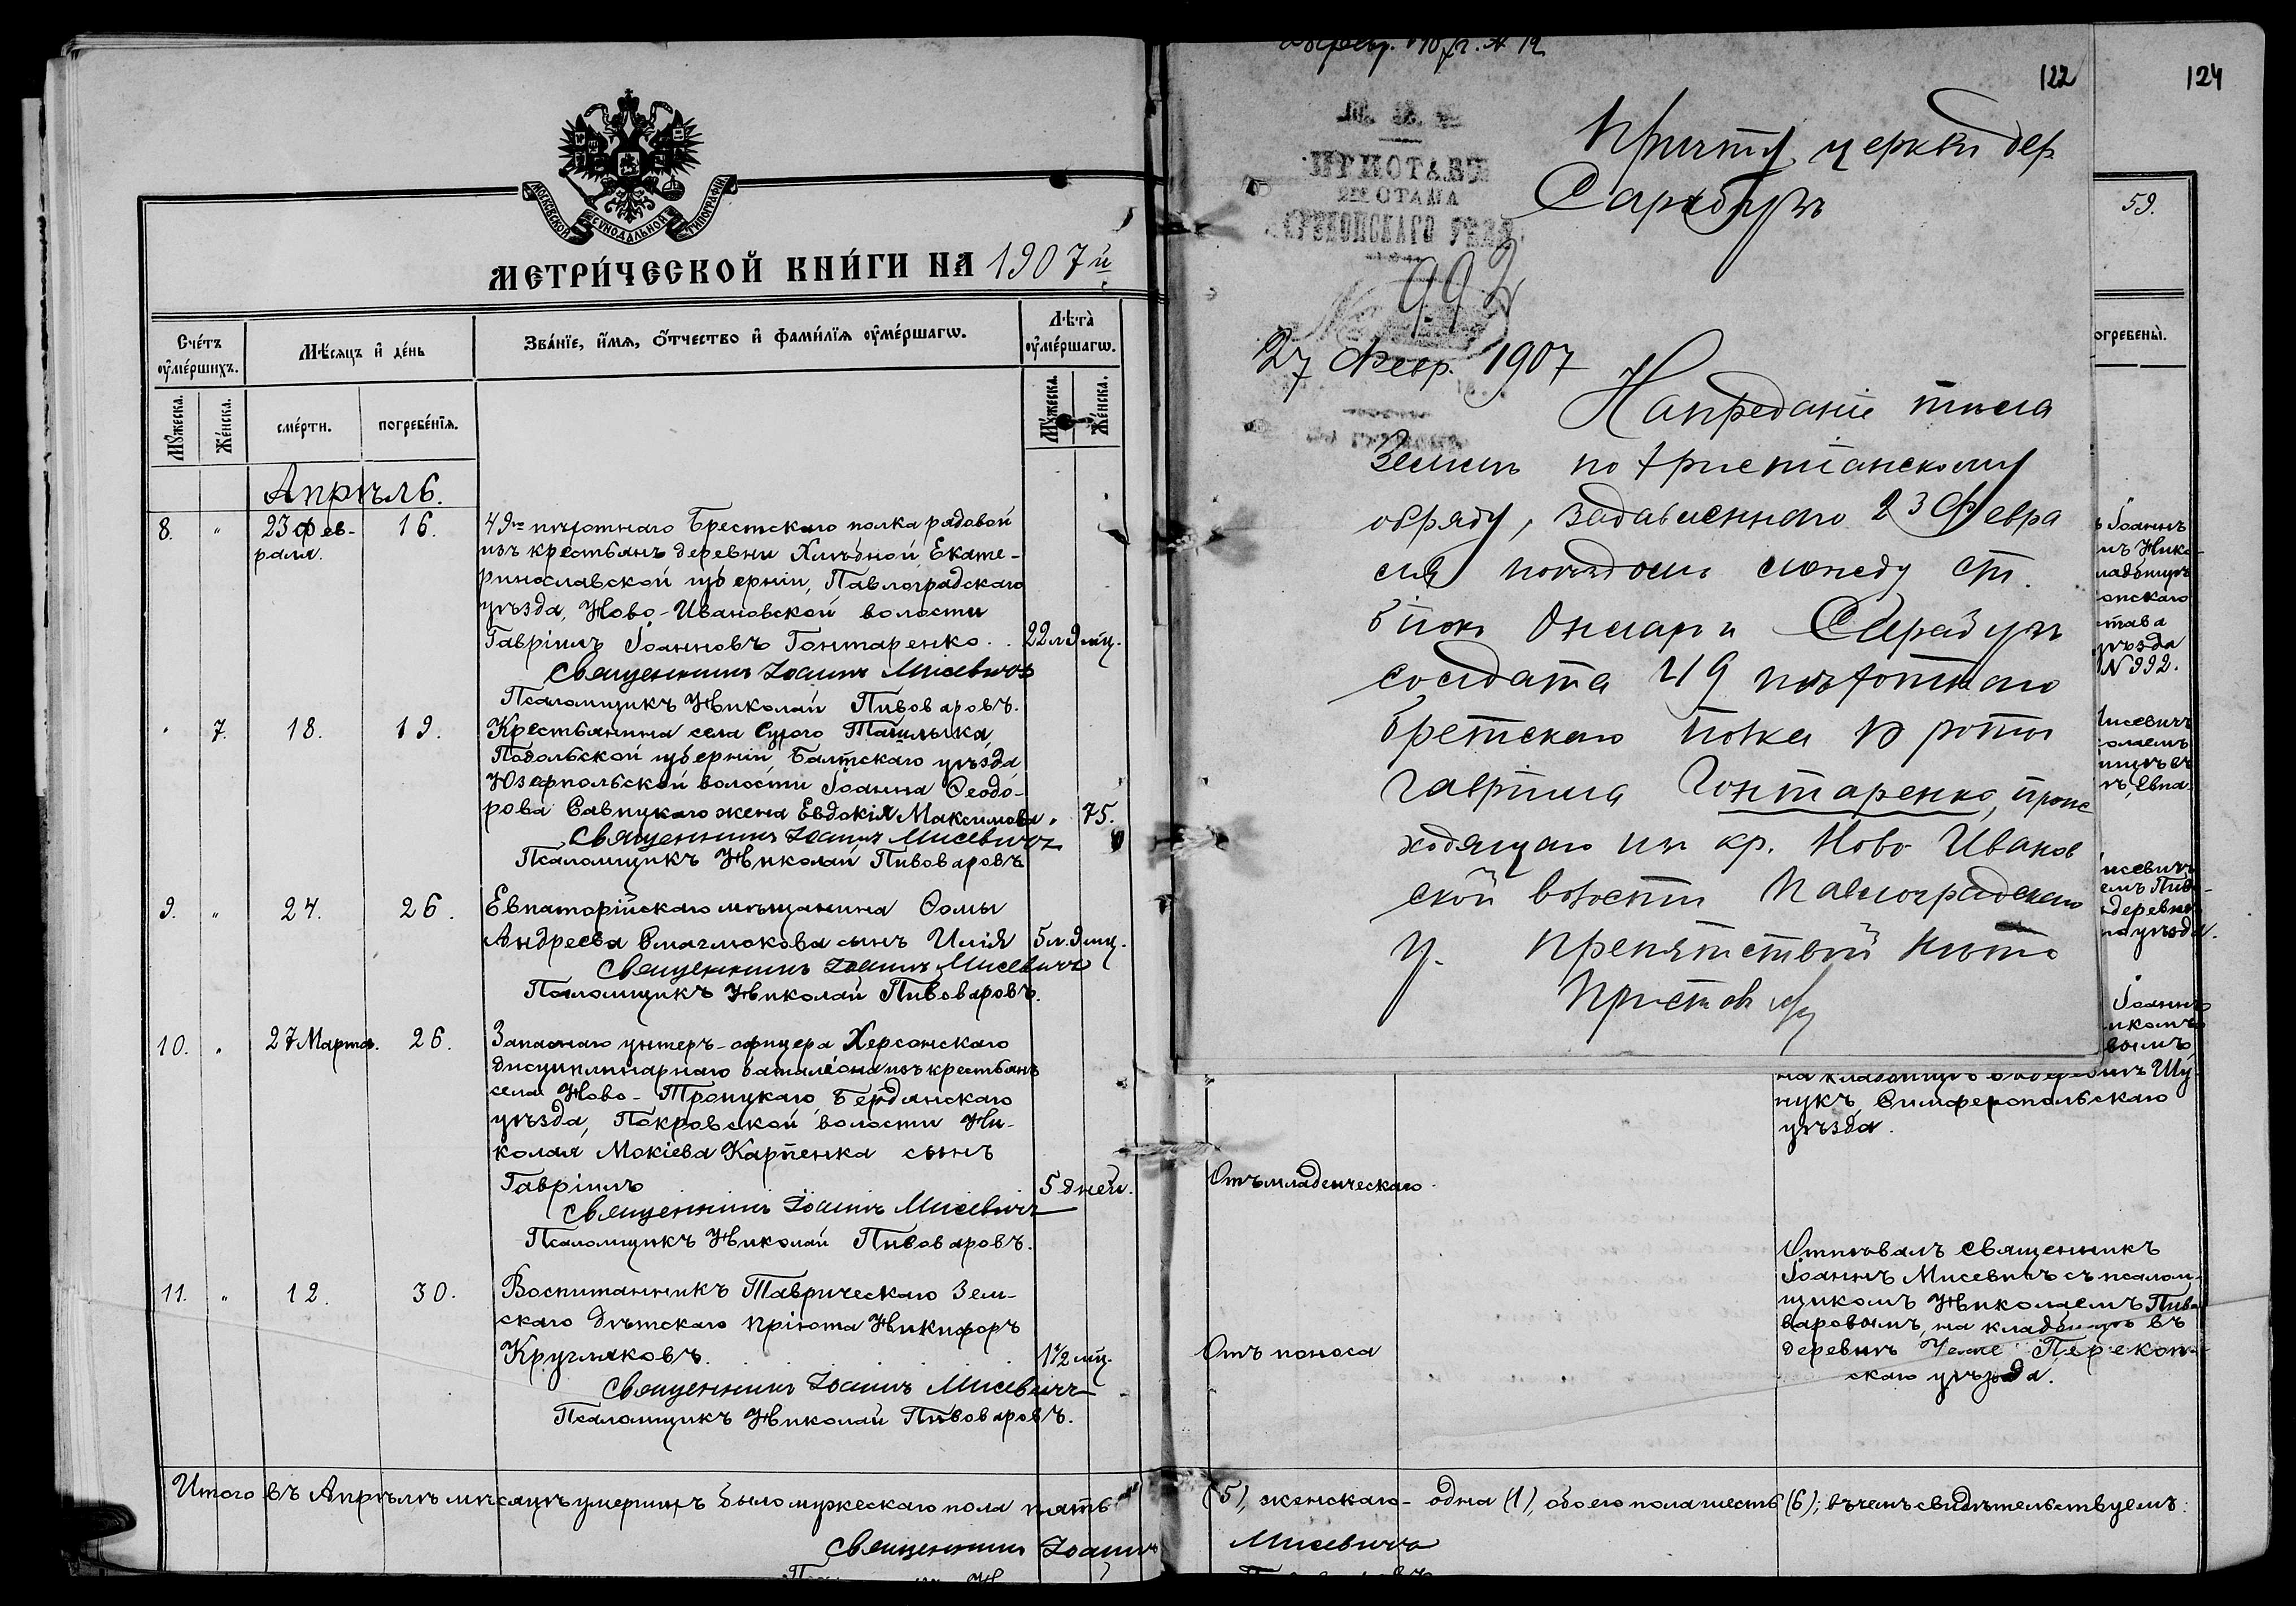 МОСКОВСКОЙ СѴНОДАЛЬНОЙ ТИПОГРАФІИ
МЕТРИ́ЧЕСКОЙ КНИ́ГИ НА 1907й
Сче́тъ ᲂу҆ме́ршихъ.
Мѣ́сяцъ и҆ де́нь
Зва́нїе, и҆́мя, ѻ҆́тчество и҆ фами́лїя ᲂу҆ме́ршагѡ.
Лѣ̀та ᲂу҆ме́ршагѡ.
Мꙋ́жеска.
Же́нска.
сме́рти.
погребе́нїя.
Мꙋ́жеска.
Же́нска.
Апрѣль.
8. " 23 Фев- 16. 49го пѣхотнаго Брестскаго полка рядовой
раля. изъ крестьянъ деревни Хлѣбной, Екате-
ринославской губерніи, Павлоградскаго
уѣзда, Ново-Ивановской волости
Гавріилъ Іоанновъ Гонтаренко . . 22 л 9 мц.
Священникъ Іоаннъ Мисевичъ
Псаломщикъ Николай Пивоваровъ.
" 7. 18. 19. Крестьянина села Сухого Ташлыка,
Подольской губерніи, Балтскаго уѣзда,
Юзефпольской волости Іоанна Ѳеодо-
рова Савицкаго жена Евдокія Максимова. 75.
Священникъ Іоаннъ Мисевичъ
Псаломщикъ Николай Пивоваровъ
9. " 24. 26. Евпаторійскаго мѣщанина Ѳомы
Андреева сынъ Илія 5 л. 9 мц.
Священникъ Іоаннъ Мисевичъ
Псаломщикъ Николай Пивоваровъ.
10. " 27 Марта. 26. Запаснаго унтеръ-офицера Херсонскаго
дисциплинарнаго баталіона изъ крестьянъ
села Ново-Троицкаго, Бердянскаго
уѣзда, Покровской волости Ни-
колая Мокіева Карпенка сынъ
Гавріилъ 5 дней.
Священникъ Іоаннъ Мисевичъ
Псаломщикъ Николай Пивоваровъ.
11. " 12. 30. Воспитанникъ Таврическаго Зем-
скаго дѣтскаго пріюта Никифоръ
Кругляковъ. 1 1/2 мц.
Священникъ Іоаннъ Мисевичъ
Псаломщикъ Николай Пивоваровъ.
Итого въ Апрѣлѣ мѣсяцѣ умершихъ было мужескаго пола пять
Священникъ Іоаннъ
122
Причту церкви дер.
Сарабузъ
М. В. Д.
ПРИСТАВЪ
2го СТАНА
ПЕРЕКОПСКАГО УѢЗДА
992
27 Февр. 1907
На преданіе тѣла
Землѣ по христіанскому
обряду, задавленнаго 23 Февра
ля поѣздомъ между ст.
Біюкъ Онларъ и Сарабузъ
солдата 49 пѣхотнаго
Бретскаго полка 10 роты
Гавріила Гонтаренко, проис
ходящаго изъ кр. Ново Иванов
ской волости Павлоградскаго
у. препятствій нѣтъ
Приставъ
124
59.
погребены̀.
ъ Іоаннъ
мъ Нико-
ладбищѣ
опскаго
става
уѣзда
N 992.
Мисевичъ
олаемъ
ищѣ въ
Мисевичъ
емъ Пив-
деревнѣ
уѣзда.
Іоаннъ
икомъ
вымъ,
на кладбищѣ въ деревнѣ Шу-
нукъ, Симферопольскаго
уѣзда.
Отъ младенческаго.
Отпѣвалъ священникъ
Іоаннъ Мисевичъ съ псалом-
щикомъ Николаемъ Пиво-
варовымъ, на кладбищѣ въ
Отъ поноса
деревнѣ Челле Перекоп-
скаго уѣзда.
(5), женскаго - одна (1), обоего пола шесть (6); въ чемъ свидѣтельствуемъ:
Мисевичъ